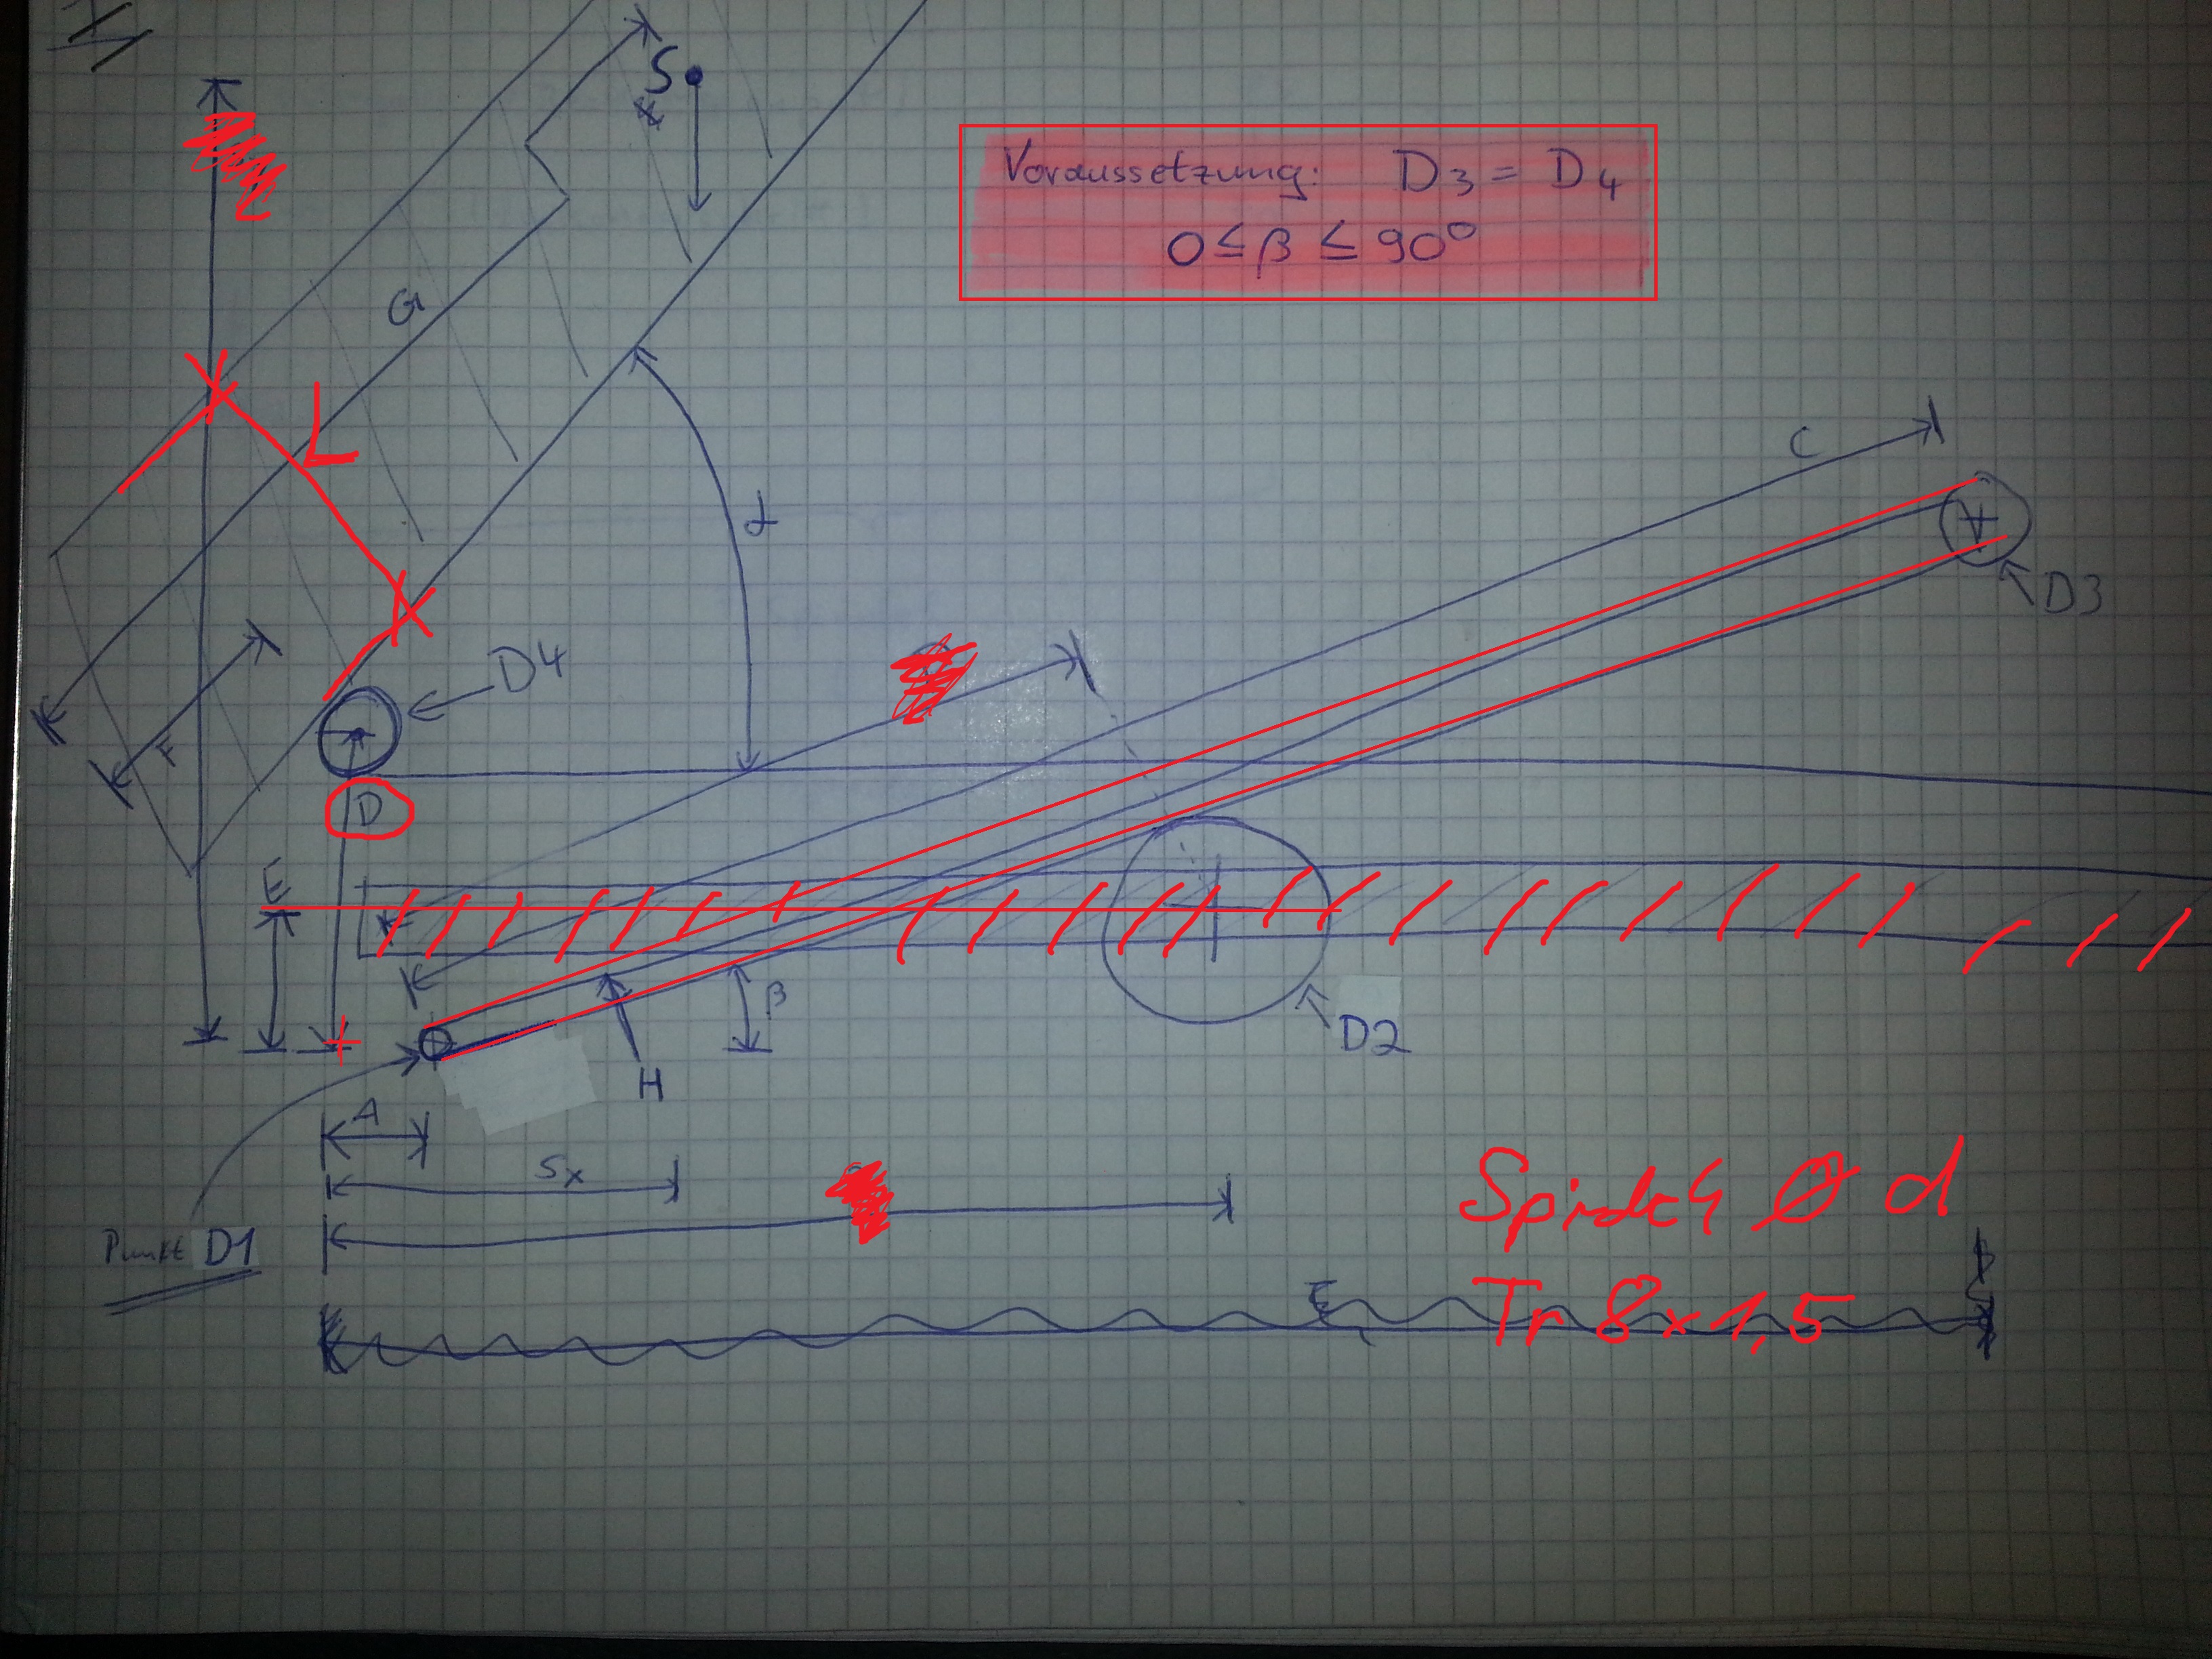 S
Voraussetzung: D3 = D4
0 ≤ β ≤ 90°
G
L
C
α
D3
D4
F
D
E
β
D2
H
A
Sx
Punkt D1
Spindel Ø d
Tr 8x1,5